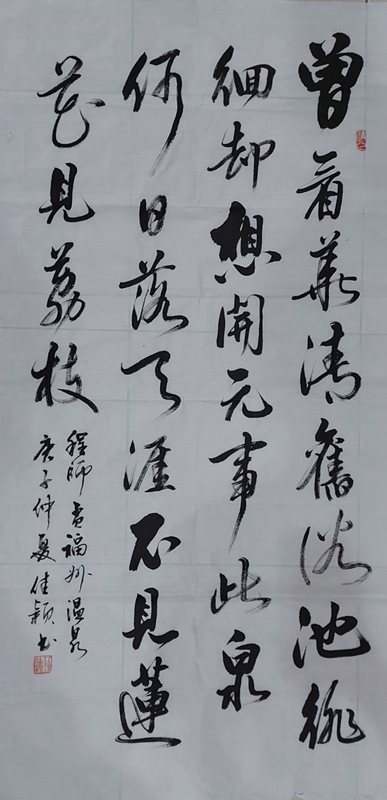 曾看華清舊浴池徘
徊却想開元事此泉
何日落天涯不見蓮
花見荔枝
程師孟福州温泉
庚子仲夏佳穎書